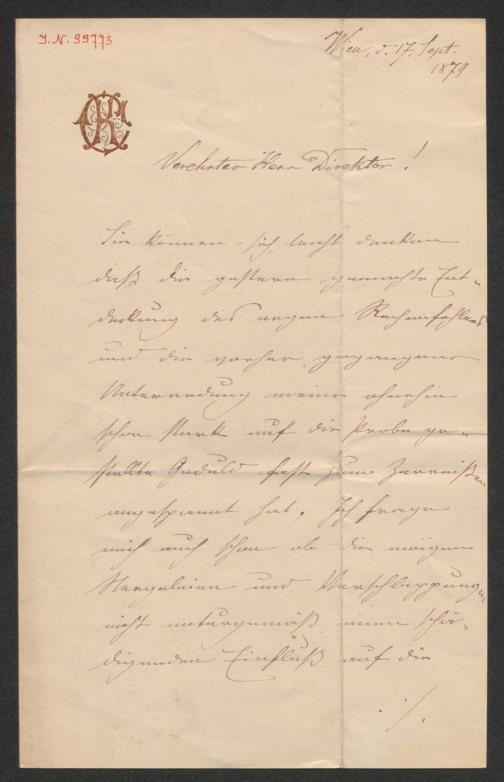 J. N. 99773
Wien, d. 17. Sept.
1879
Verehrter Herr Direktor!
Sie können sich leicht denken
daß die gestern gemachte Ent-
deckung des argen Rechenfehlers
und die vorher gegangene
Unterredung meine ohnehin
schon stark auf die Probe ge-
stellte Geduld fast zum Zerreißen
angespannt hat. Ich frage
mich auch schon ob die ewigen
Nergeleien und Verschleppungen
nicht naturgemäß einen schä-
digenden Einfluß auf die
./.